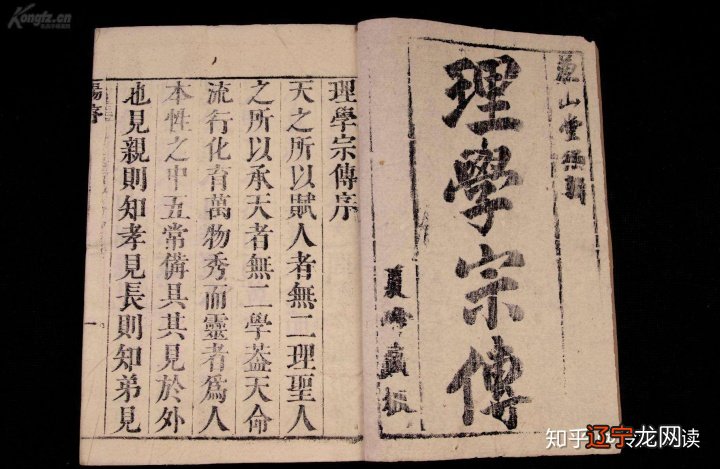 兼山堂
理學宗傳
夏峰藏板
理學宗傳序
天之所以賦人者無二理聖人
之所以承天者無二學葢天命
流行化育萬物秀而靈者爲人
本性之中五常備具其見於外
也見親則知孝見長則知弟見
Kongfz.cn
知乎
辽宁龙网读